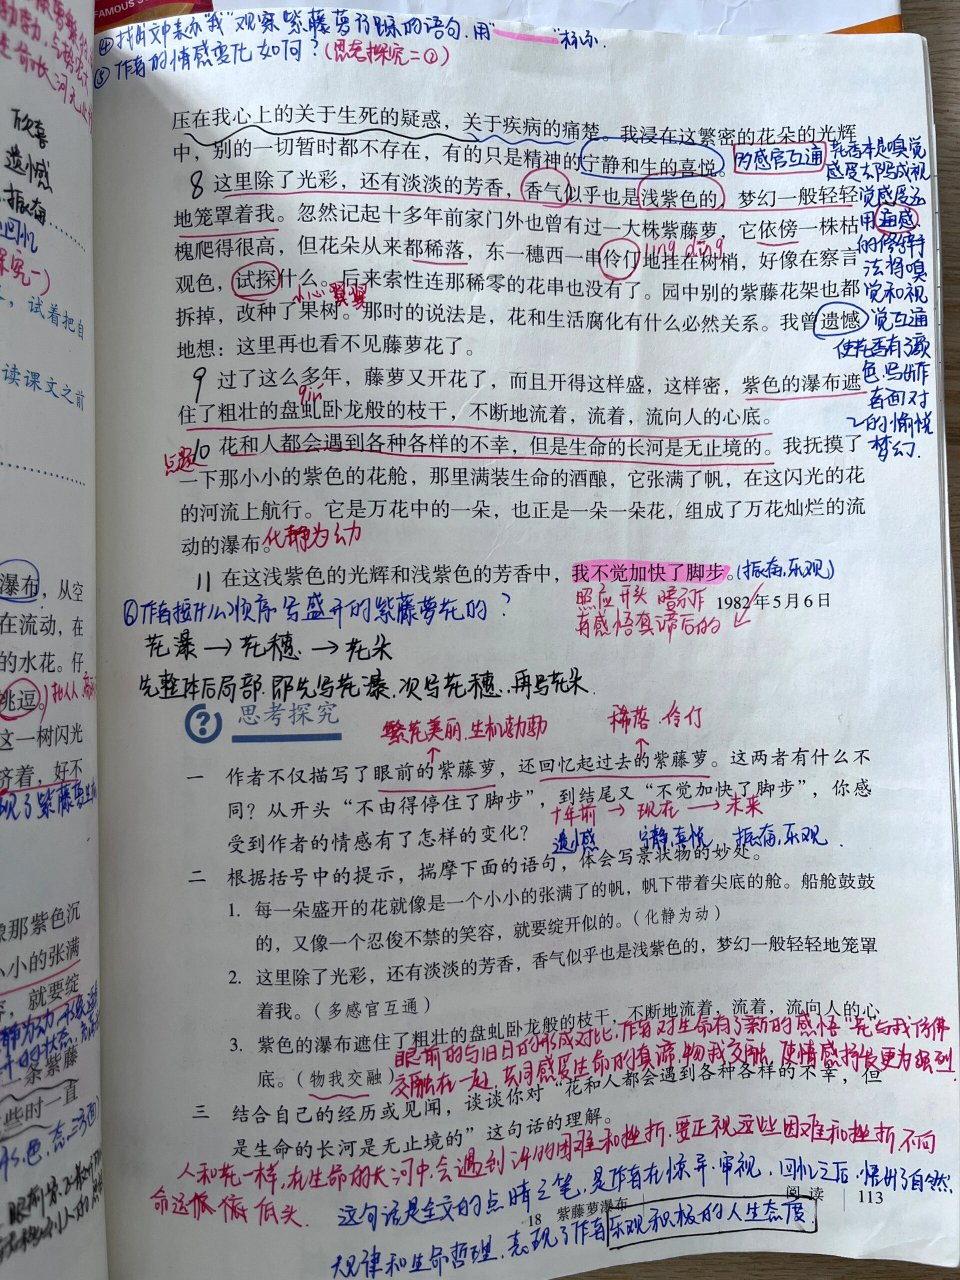 ④找出文中表示“我”观察紫藤萝行踪的语句,用“ ”标示.
⑤作者的情感变化如何?(思考探究一②)
压在我心上的关于生死的疑惑,关于疾病的痛楚。我浸在这繁密的花朵的光辉
中,别的一切暂时都不存在,有的只是精神的宁静和生的喜悦。
多感官互通
8 这里除了光彩,还有淡淡的芳香,香气似乎也是浅紫色的,梦幻一般轻轻
地笼罩着我。忽然记起十多年前家门外也曾有过一大株紫藤萝,它依傍一株枯
槐爬得很高,但花朵从来都稀落,东一穗西一串伶仃地挂在树梢,好像在察言
líng dīng
观色,试探什么。后来索性连那稀零的花串也没有了。园中别的紫藤花架也都
小心翼翼
拆掉,改种了果树。那时的说法是,花和生活腐化有什么必然关系。我曾遗憾
地想:这里再也看不见藤萝花了。
花香本是嗅觉
觉感度
用通感
的修辞手
法将嗅
觉和视
觉互通
使花香有了颜
色,写出作
者面对
花的愉悦
梦幻.
9 过了这么多年,藤萝又开花了,而且开得这样盛,这样密,紫色的瀑布遮
qiú
住了粗壮的盘虬卧龙般的枝干,不断地流着,流着,流向人的心底。
点题
10 花和人都会遇到各种各样的不幸,但是生命的长河是无止境的。我抚摸了
一下那小小的紫色的花舱,那里满装生命的酒酿,它张满了帆,在这闪光的花
的河流上航行。它是万花中的一朵,也正是一朵一朵花,组成了万花灿烂的流
动的瀑布。化静为动
11 在这浅紫色的光辉和浅紫色的芳香中,我不觉加快了脚步。(振奋,乐观)
照应开头 暗示作
者感悟真谛后的
1982年5月6日
⑥作者按什么顺序写盛开的紫藤萝花的?
花瀑→花穗→花朵
先整体后局部.即先写花瀑.次写花穗.再写花朵.
思考探究
繁花美丽.生机勃勃
稀落.伶仃
一 作者不仅描写了眼前的紫藤萝,还回忆起过去的紫藤萝。这两者有什么不
同?从开头“不由得停住了脚步”,到结尾又“不觉加快了脚步”,你感
十年前→现在→未来
受到作者的情感有了怎样的变化?
遗憾 宁静喜悦 振奋,乐观.
二 根据括号中的提示,揣摩下面的语句,体会写景状物的妙处。
1. 每一朵盛开的花就像是一个小小的张满了的帆,帆下带着尖底的舱。船舱鼓鼓
的,又像一个忍俊不禁的笑容,就要绽开似的。(化静为动)
2. 这里除了光彩,还有淡淡的芳香,香气似乎也是浅紫色的,梦幻一般轻轻地笼罩
着我。(多感官互通)
3. 紫色的瀑布遮住了粗壮的盘虬卧龙般的枝干,不断地流着,流着,流向人的心
底。(物我交融)
眼前的与旧日的形成对比,作者对生命有了新的感悟“花与我仿佛
交融在一起,共同感受生命的真谛,物我交融,使情感抒发更为强烈
三 结合自己的经历或见闻,谈谈你对“花和人都会遇到各种各样的不幸,但
是生命的长河是无止境的”这句话的理解。
人和花一样,在生命的长河中,会遇到许的困难和挫折,要正视这些困难和挫折,不向
命运低头.
这句话是全文的点睛之笔,是作者在惊异.审视,回忆之后,悟出了自然
规律和生命哲理,表现了作者乐观积极的人生态度
18 紫藤萝瀑布
阅读 113
欣喜
遗憾
振奋
回忆
,试着把自
读课文之前
瀑布,从空
在流动,在
的水花。仔
挑逗。
这一树闪光
挤着,好不
象那紫色沉
小小的张满
容,就要绽
一条紫藤
些时一直